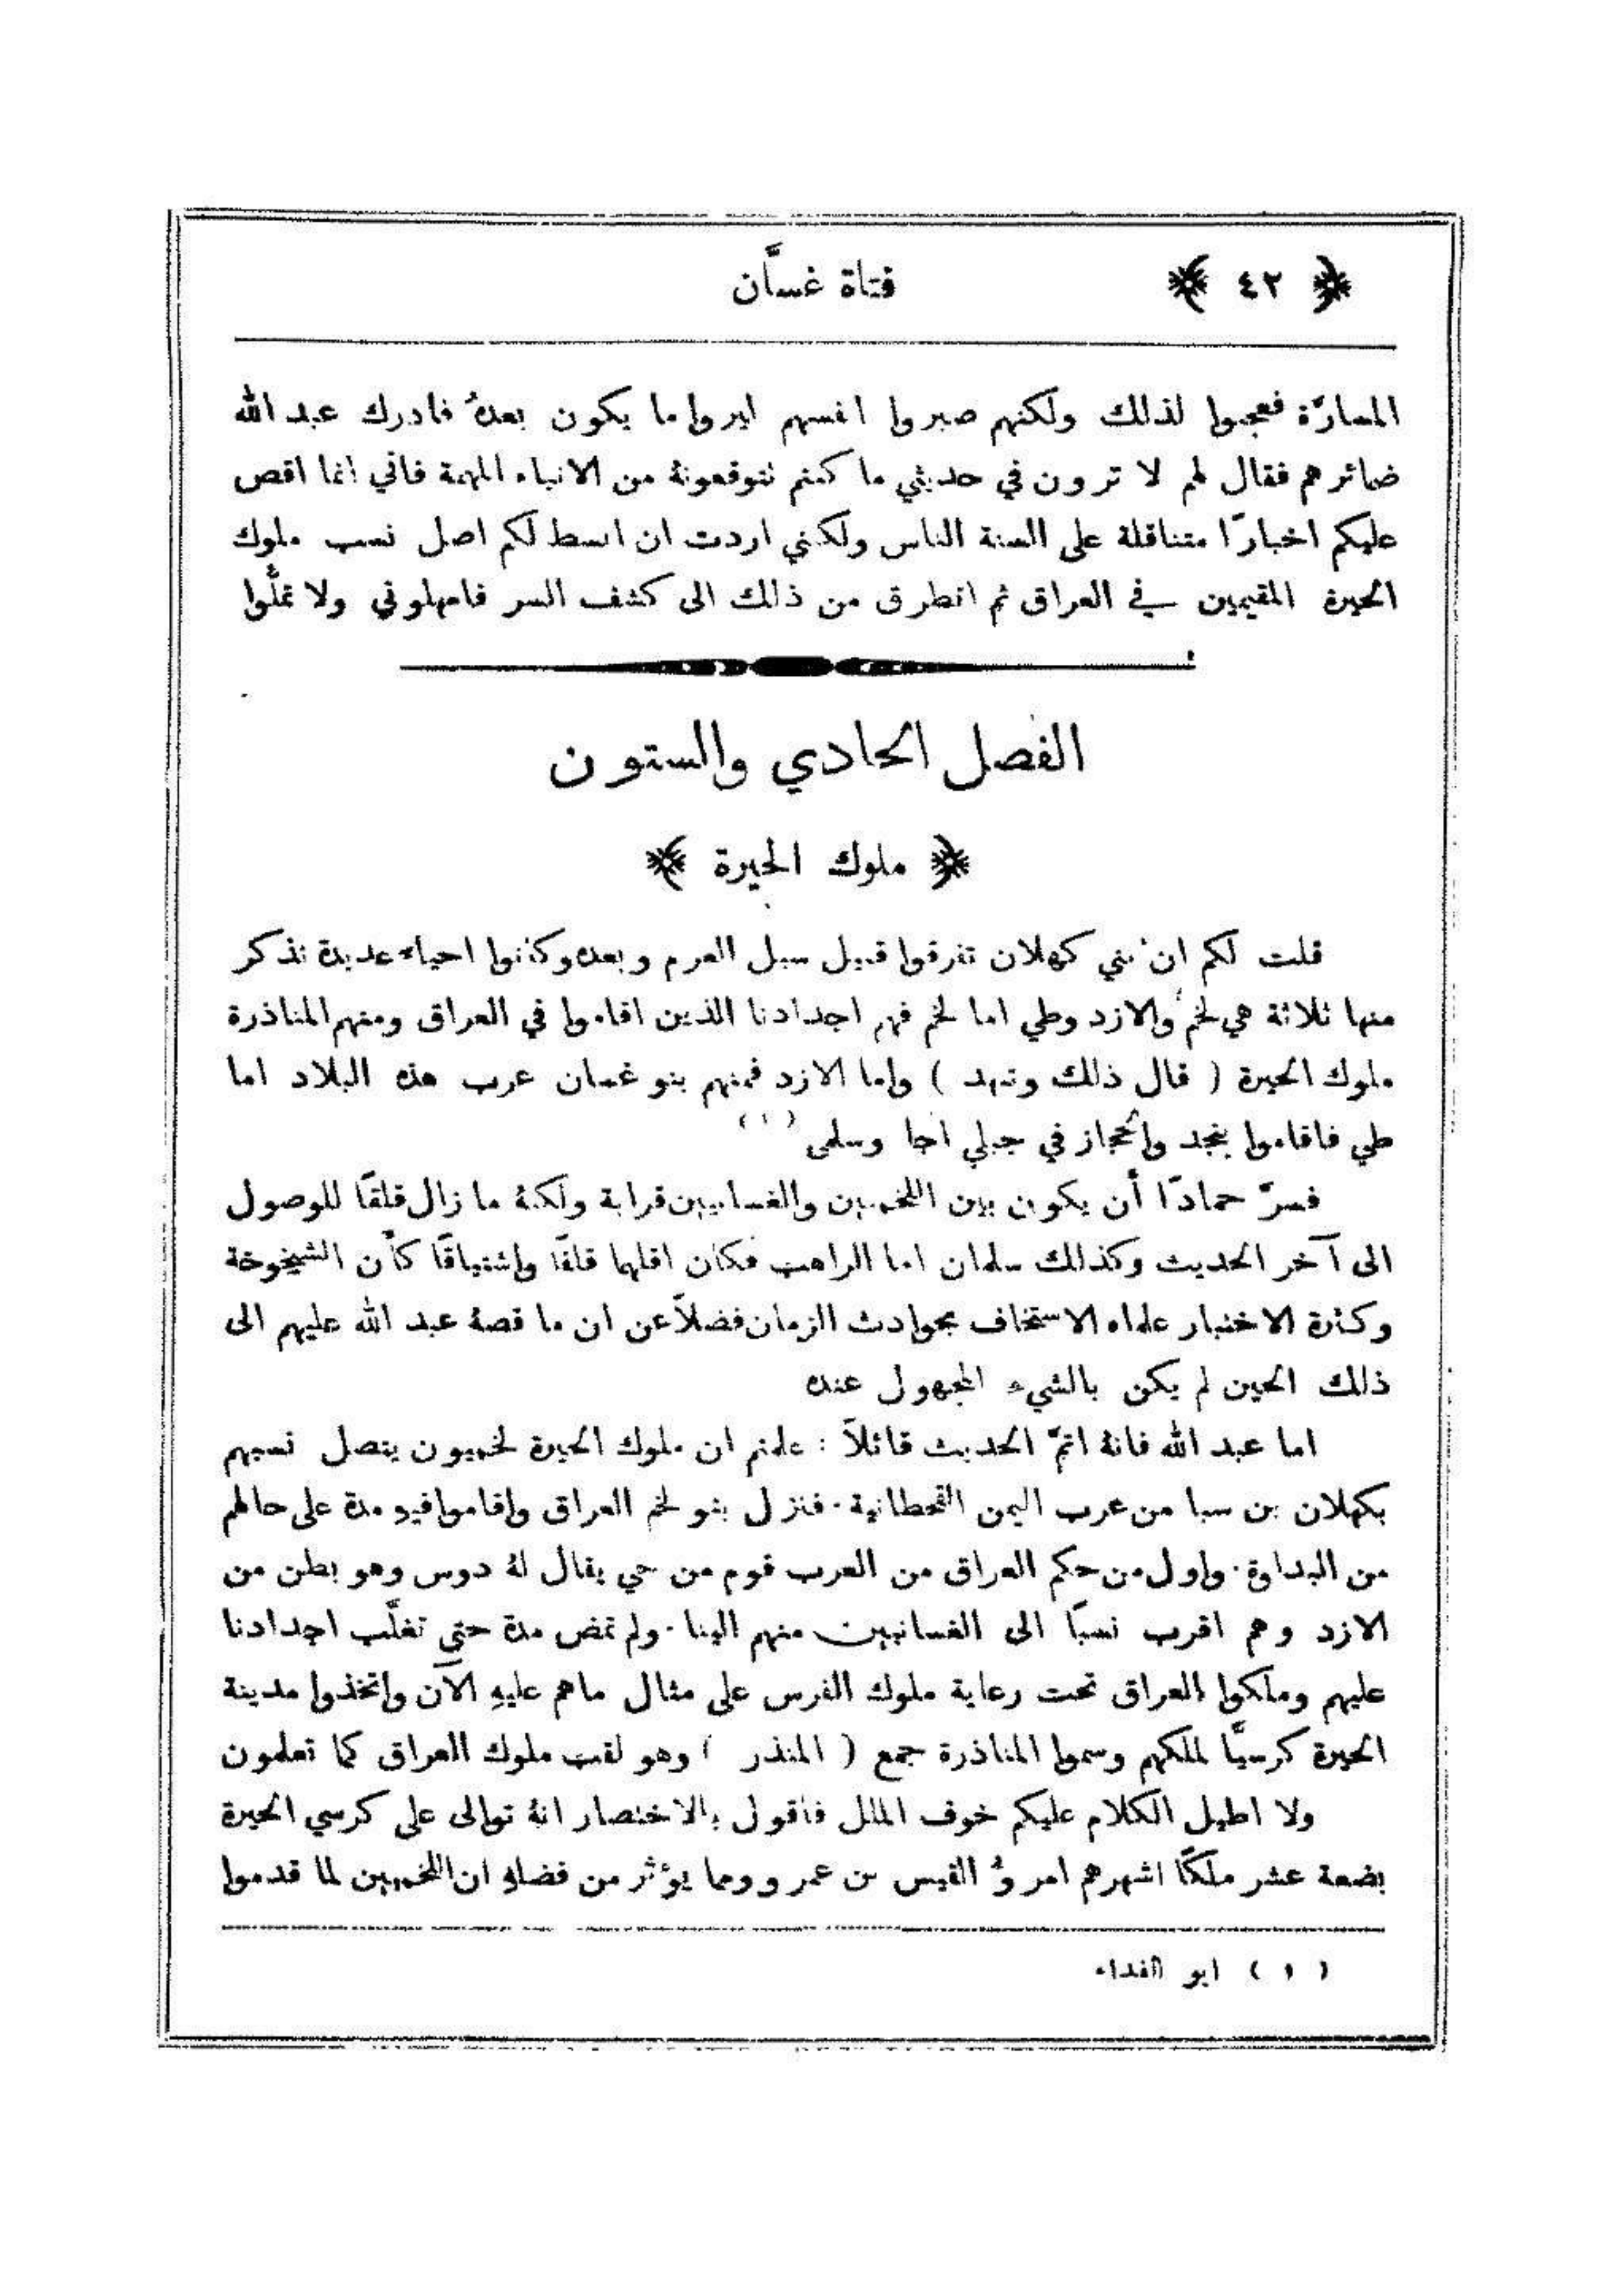 ﴿ ٤٢ ﴾ فتاة غسَّان
المسارّة فعجبوا لذلك ولكنهم صبروا انفسهم ليروا ما يكون بعدهُ فادرك عبد الله
ضمائرهم فقال لهم لا ترون في حديثي ما كنتم تتوقعونهُ من الانباء المهمة فاني انما اقص
عليكم اخبارًا متناقلة على السنة الناس ولكني اردت ان ابسط لكم اصل نسب ملوك
الحيرة المقيمين في العراق ثم اتطرق من ذلك الى كشف السر فامهلوني ولا تملُّوا
الفصل الحادي والستون
﴿ ملوك الحيرة ﴾
قلت لكم ان بني كهلان تفرقوا قبيل سيل العرم وبعده وكانوا احياء عديدة نذكر
منها ثلاثة هي لخم والازد وطي اما لخم فهم اجدادنا الذين اقاموا في العراق ومنهم المناذرة
ملوك الحيرة ( قال ذلك وتنهد ) واما الازد فمنهم بنو غسان عرب هذه البلاد اما
طي فاقاموا بنجد والحجاز في جبلي اجا وسلمى (١)
فسرّ حمادًا أن يكون بين اللخميين والغسانيين قرابة ولكنهُ ما زال قلقًا للوصول
الى آخر الحديث وكذلك سلمان اما الراهب فكان اقلهما قلقًا واشتياقًا كأن الشيخوخة
وكثرة الاختبار علماه الاستخفاف بحوادث الزمان فضلاً عن ان ما قصهُ عبد الله عليهم الى
ذلك الحين لم يكن بالشيء المجهول عنده
اما عبد الله فانهُ اتمّ الحديث قائلاً : علمتم ان ملوك الحيرة لخميون يتصل نسبهم
بكهلان بن سبا من عرب اليمن القحطانية . فنزل بنو لخم العراق واقاموا فيهِ مدة على حالهم
من البداوة . واول من حكم العراق من العرب قوم من حي يقال لهُ دوس وهو بطن من
الازد وهم اقرب نسبًا الى الغسانيين منهم الينا . ولم تمض مدة حتى تغلَّب اجدادنا
عليهم وملكوا العراق تحت رعاية ملوك الفرس على مثال ماهم عليهِ الآن واتخذوا مدينة
الحيرة كرسيًّا لملكهم وسموا المناذرة جمع ( المنذر ) وهو لقب ملوك العراق كما تعلمون
ولا اطيل الكلام عليكم خوف الملل فاقول بالاختصار انهُ توالى على كرسي الحيرة
بضعة عشر ملكًا اشهرهم امروُ القيس بن عمرو ومما يؤثر من فضلهِ ان اللخميين لما قدموا
( ١ ) ابو الفداء